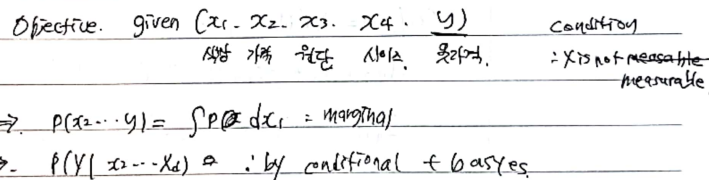 Objective. given (x1. x2. x3. x4. y) condition
색상 가격 원단 사이즈 옷가격. : X is not measable
measurable
⇒. P(x2...y) = ∫P dx1 = marginal
P(Y| x2...Xd) ∴ by conditional + bayes